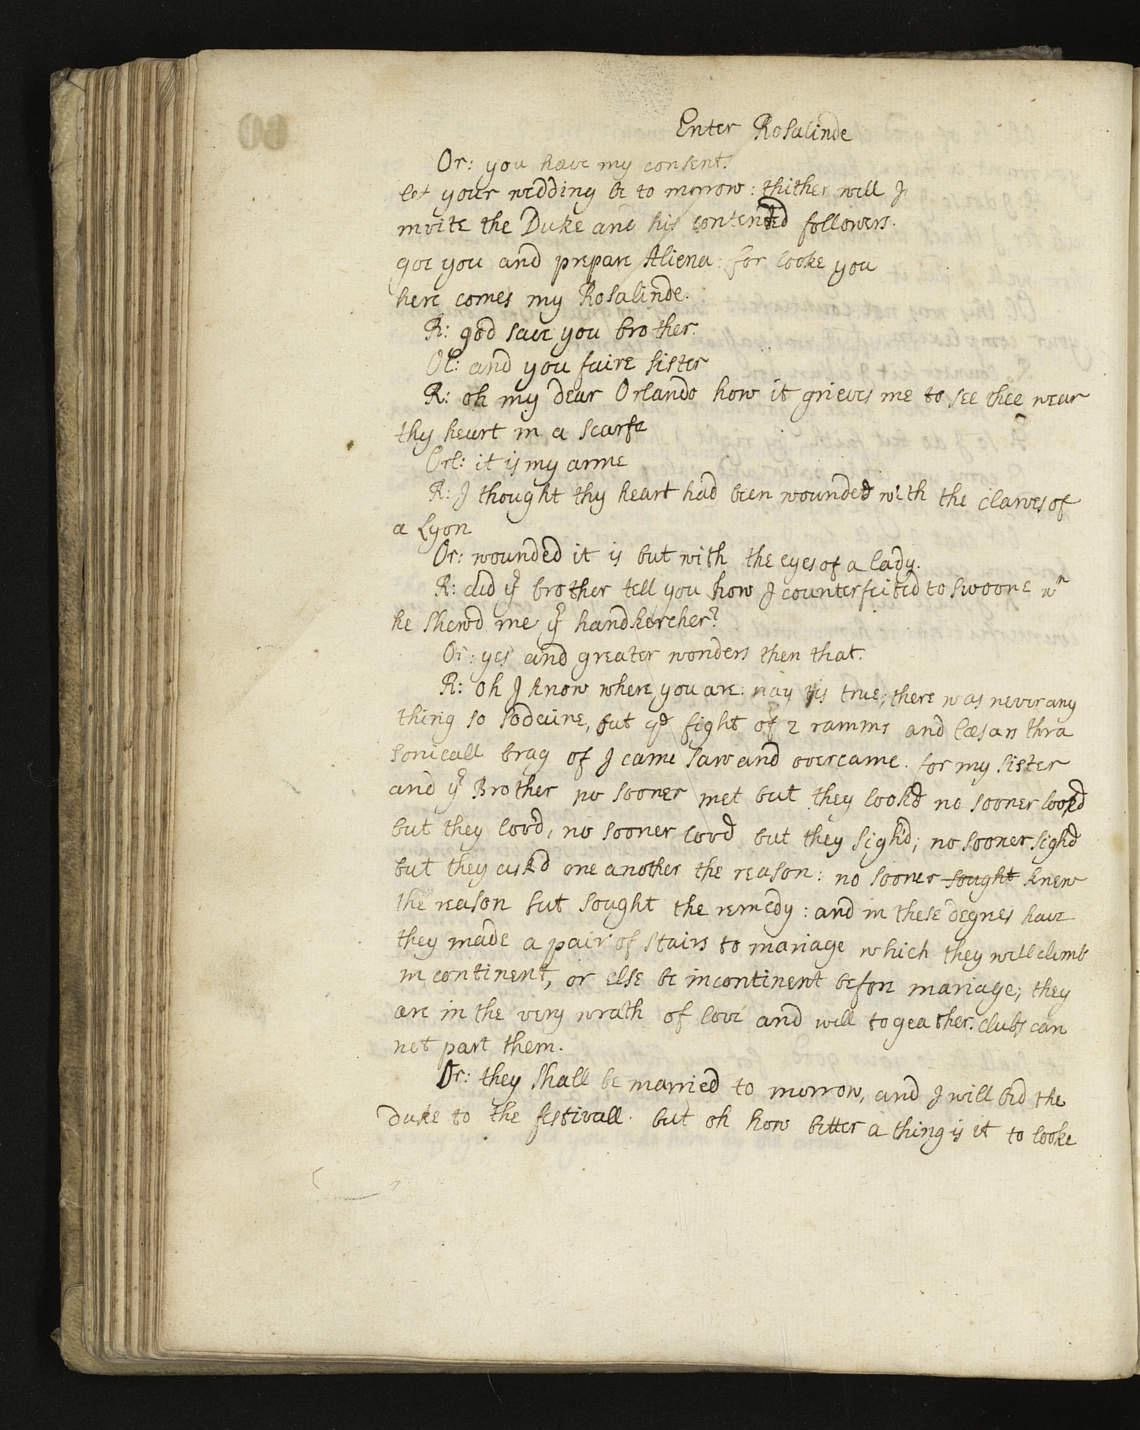 Enter Rosalinde
Or: you have my consent.
let your wedding be to morrow: thither will I
invite the Duke and his contented followers.
goe you and prepare Aliena: for looke you
here comes my Rosalinde.
R: god save you brother.
Ol: and you faire sister
R: oh my dear Orlando how it grieves me to see thee wear
thy heart in a scarfe
Orl: it is my arme
R: I thought thy heart had been wounded with the clawes of
a Lyon
Or: wounded it is but with the eyes of a lady.
R: did yr brother tell you how I counterfeited to swoone wn
he shewd me yr handkercher?
Or: yes and greater wonders then that.
R: oh I know where you are: nay tis true; there was never any
thing so sodaine, but ye fight of 2 ramms and Cæsars thra
sonicall brag of I came saw and overcame. for my sister
and yr Brother no sooner met but they look'd no sooner lookd
but they lov'd, no sooner lovd but they sigh'd; no sooner sigh'd
but they ask'd one another the reason: no sooner sought knew
the reason but sought the remedy: and in these degrees have
they made a pair of stairs to mariage which they will climb
incontinent, or else be incontinent before mariage; they
are in the very wrath of love and will togeather. clubs can
not part them.
Or: they shall be married to morrow, and I will bid the
Duke to the festivall. but oh how bitter a thing is it to looke